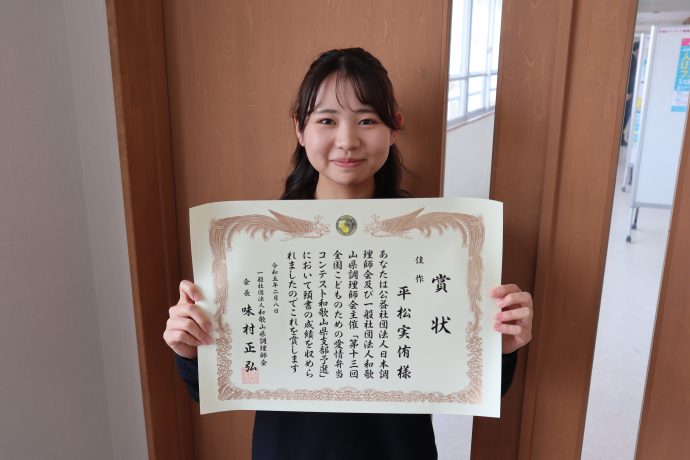 賞状
佳作
平松実侑様
あなたは公益社団法人日本調
理師会及び一般社団法人和歌
山県調理師会主催「第十三回
全国こどものための愛情弁当
コンテスト和歌山県支部予選」
において頭書の成績を収めら
れましたのでこれを賞します
令和五年二月八日
一般社団法人和歌山県調理師会
会長 味村正弘